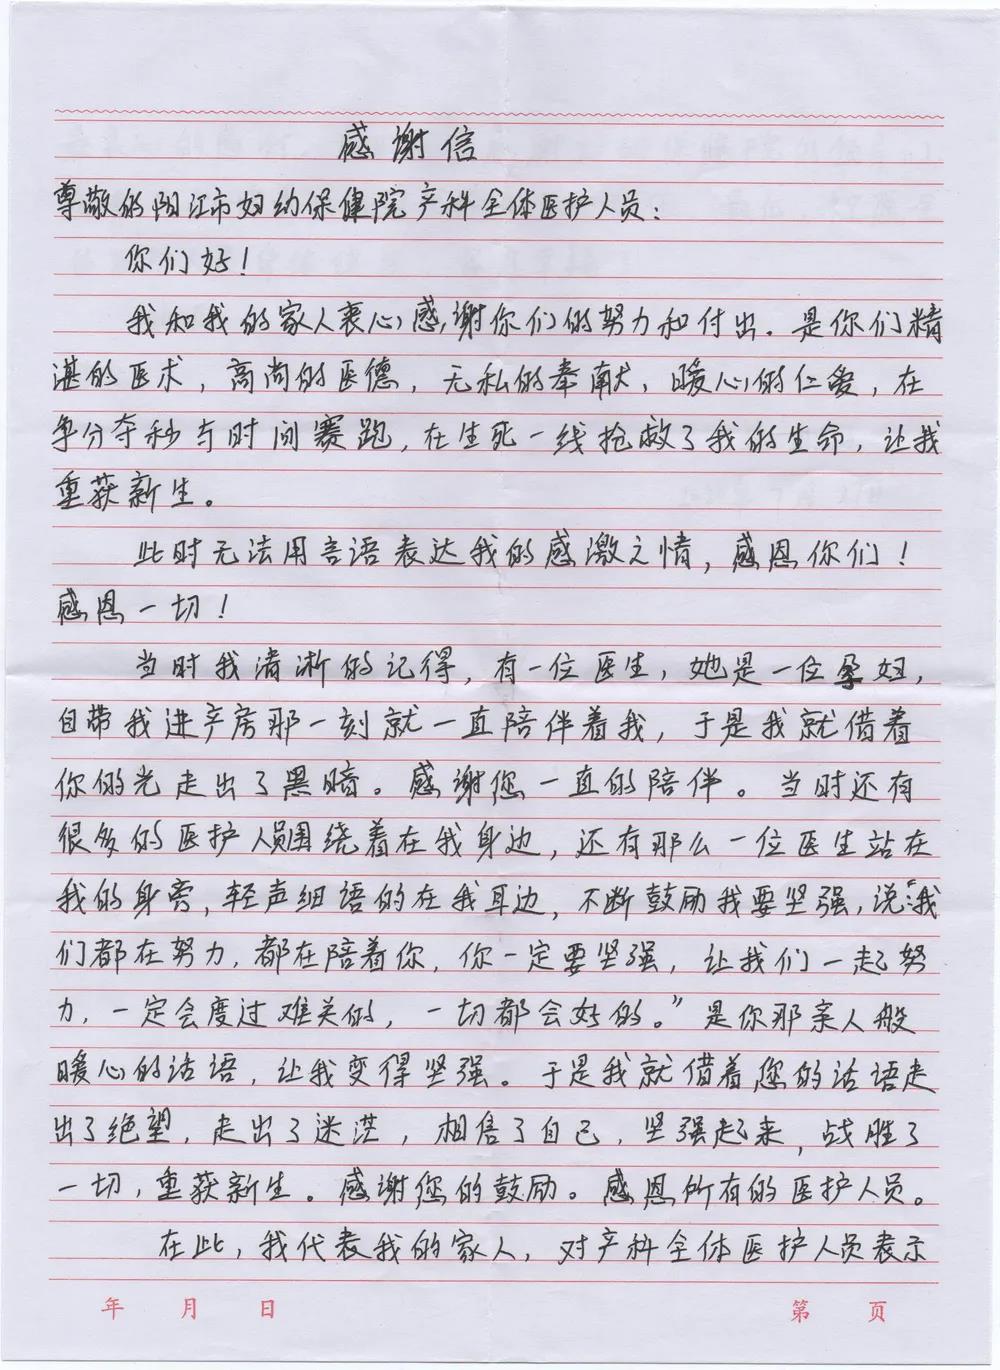 感谢信
尊敬的阳江市妇幼保健院产科全体医护人员：
你们好！
我和我的家人衷心感谢你们的努力和付出。是你们精
湛的医术，高尚的医德，无私的奉献，暖心的仁爱，在
争分夺秒与时间赛跑，在生死一线抢救了我的生命，让我
重获新生。
此时无法用言语表达我的感激之情，感恩你们！
感恩一切！
当时我清淅的记得，有一位医生，她是一位孕妇，
自带我进产房那一刻就一直陪伴着我，于是我就借着
你的光走出了黑暗。感谢您一直的陪伴。当时还有
很多的医护人员围绕着在我身边，还有那么一位医生站在
我的身旁，轻声细语的在我耳边，不断鼓励我要坚强，说：“我
们都在努力，都在陪着你，你一定要坚强，让我们一起努
力，一定会度过难关的，一切都会好的。”是你那亲人般
暖心的话语，让我变得坚强。于是我就借着您的话语走
出了绝望，走出了迷茫，相信了自己，坚强起来，战胜了
一切，重获新生。感谢您的鼓励。感恩所有的医护人员。
在此，我代表我的家人，对产科全体医护人员表示
年 月 日 第 页